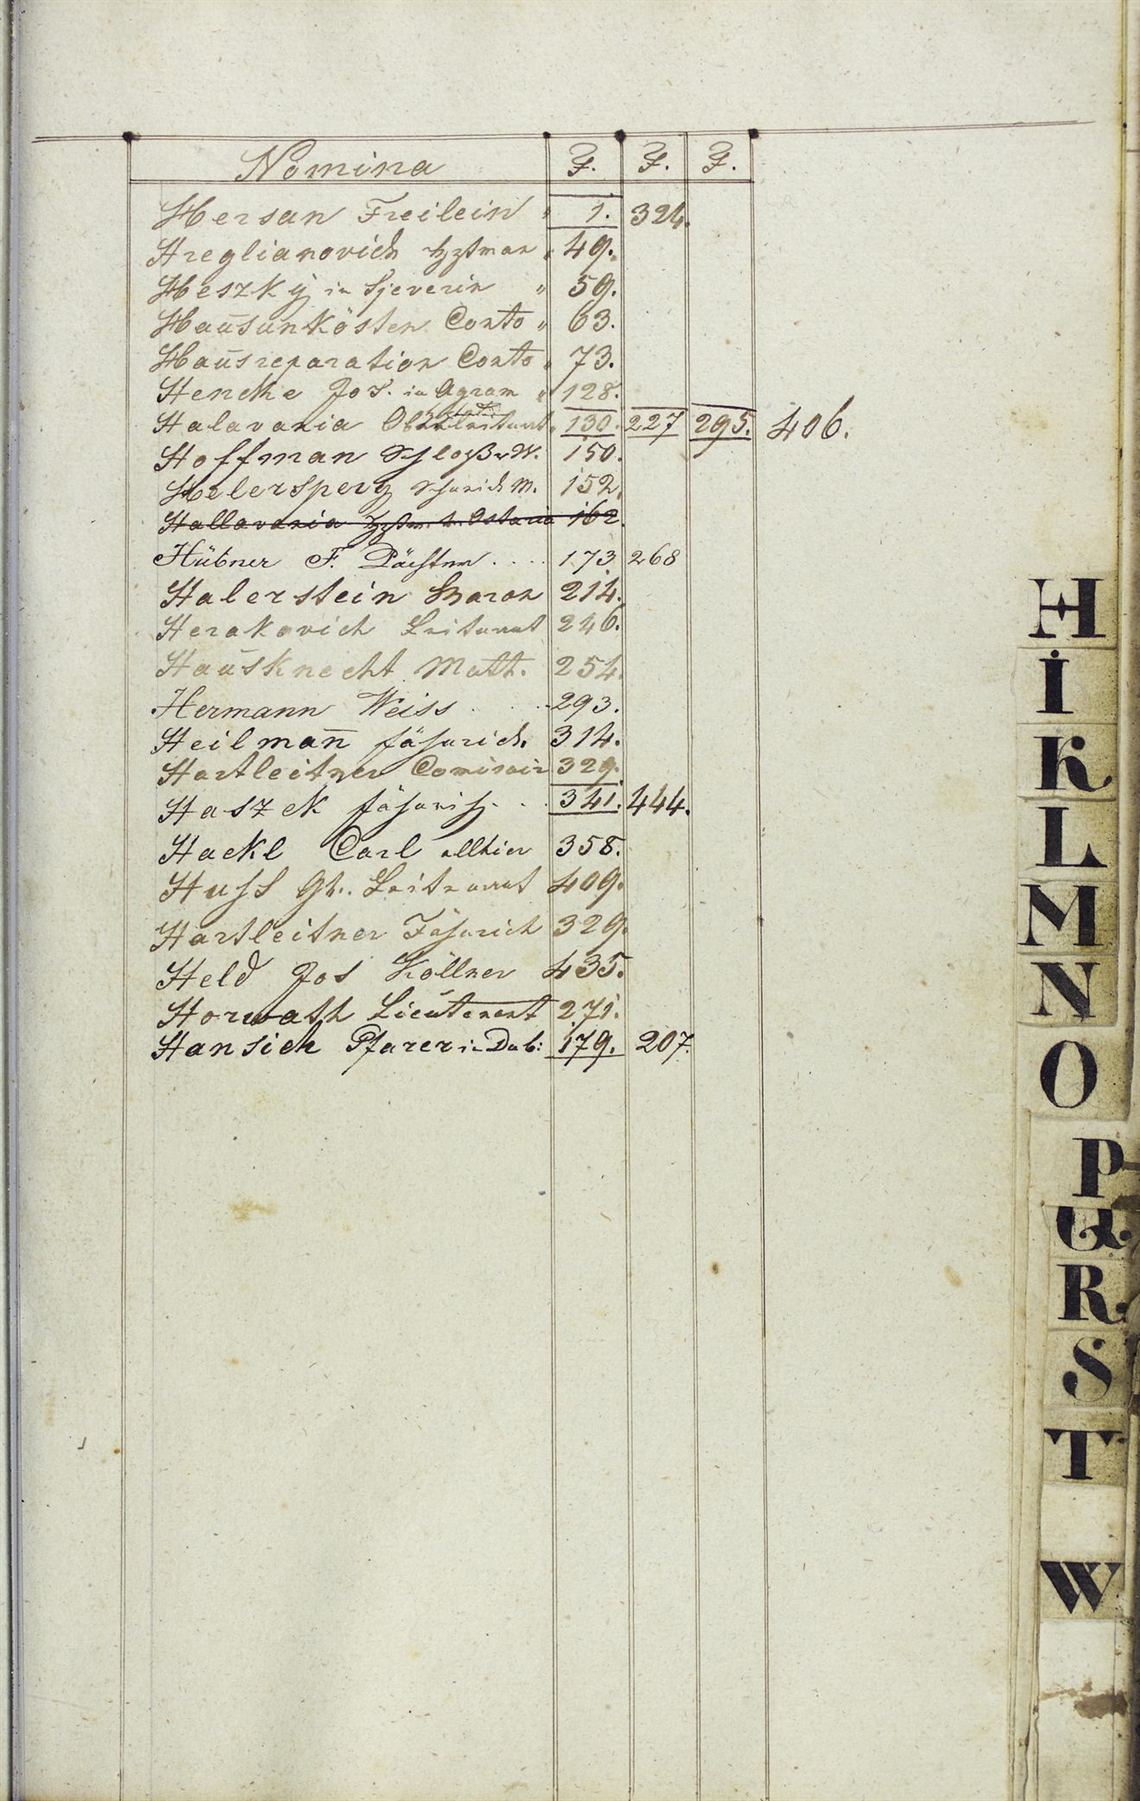 Nomina F. F. F.
Hersan Freilein " 1. 324.
Hreglianovich Hptman " 49.
Heszky in Sjeverin " 59.
Haüsunkösten Conto " 63.
Haüsreparation Conto " 73.
Hencke Jos. in Agram " 128.
Halavania 130. 227 295. 406.
Hoffman Schloß W. 150.
Helersperg M. 152.
Hallavania 162.
Hübner F. Pächter .... 173 268
Halerstein Baron 214.
Herakovich Leitenant 246.
Haüsknecht Matt. 254.
Hermann Weiss .... 293.
Heilman̄ fähnrich. 314.
Hartleitner Comisair 329.
Haszek fähnrich . . 341. 444.
Hackl Carl allhier 358.
Huss Leitenant 409.
Hartleitner Fähnrich 329.
Held Jos Köllner 435.
Horwath Lieütenent 271.
Hansich Pfarer in Dub: 179. 207.
H
I
K
L
M
N
O
P
Q
R
S
T
W